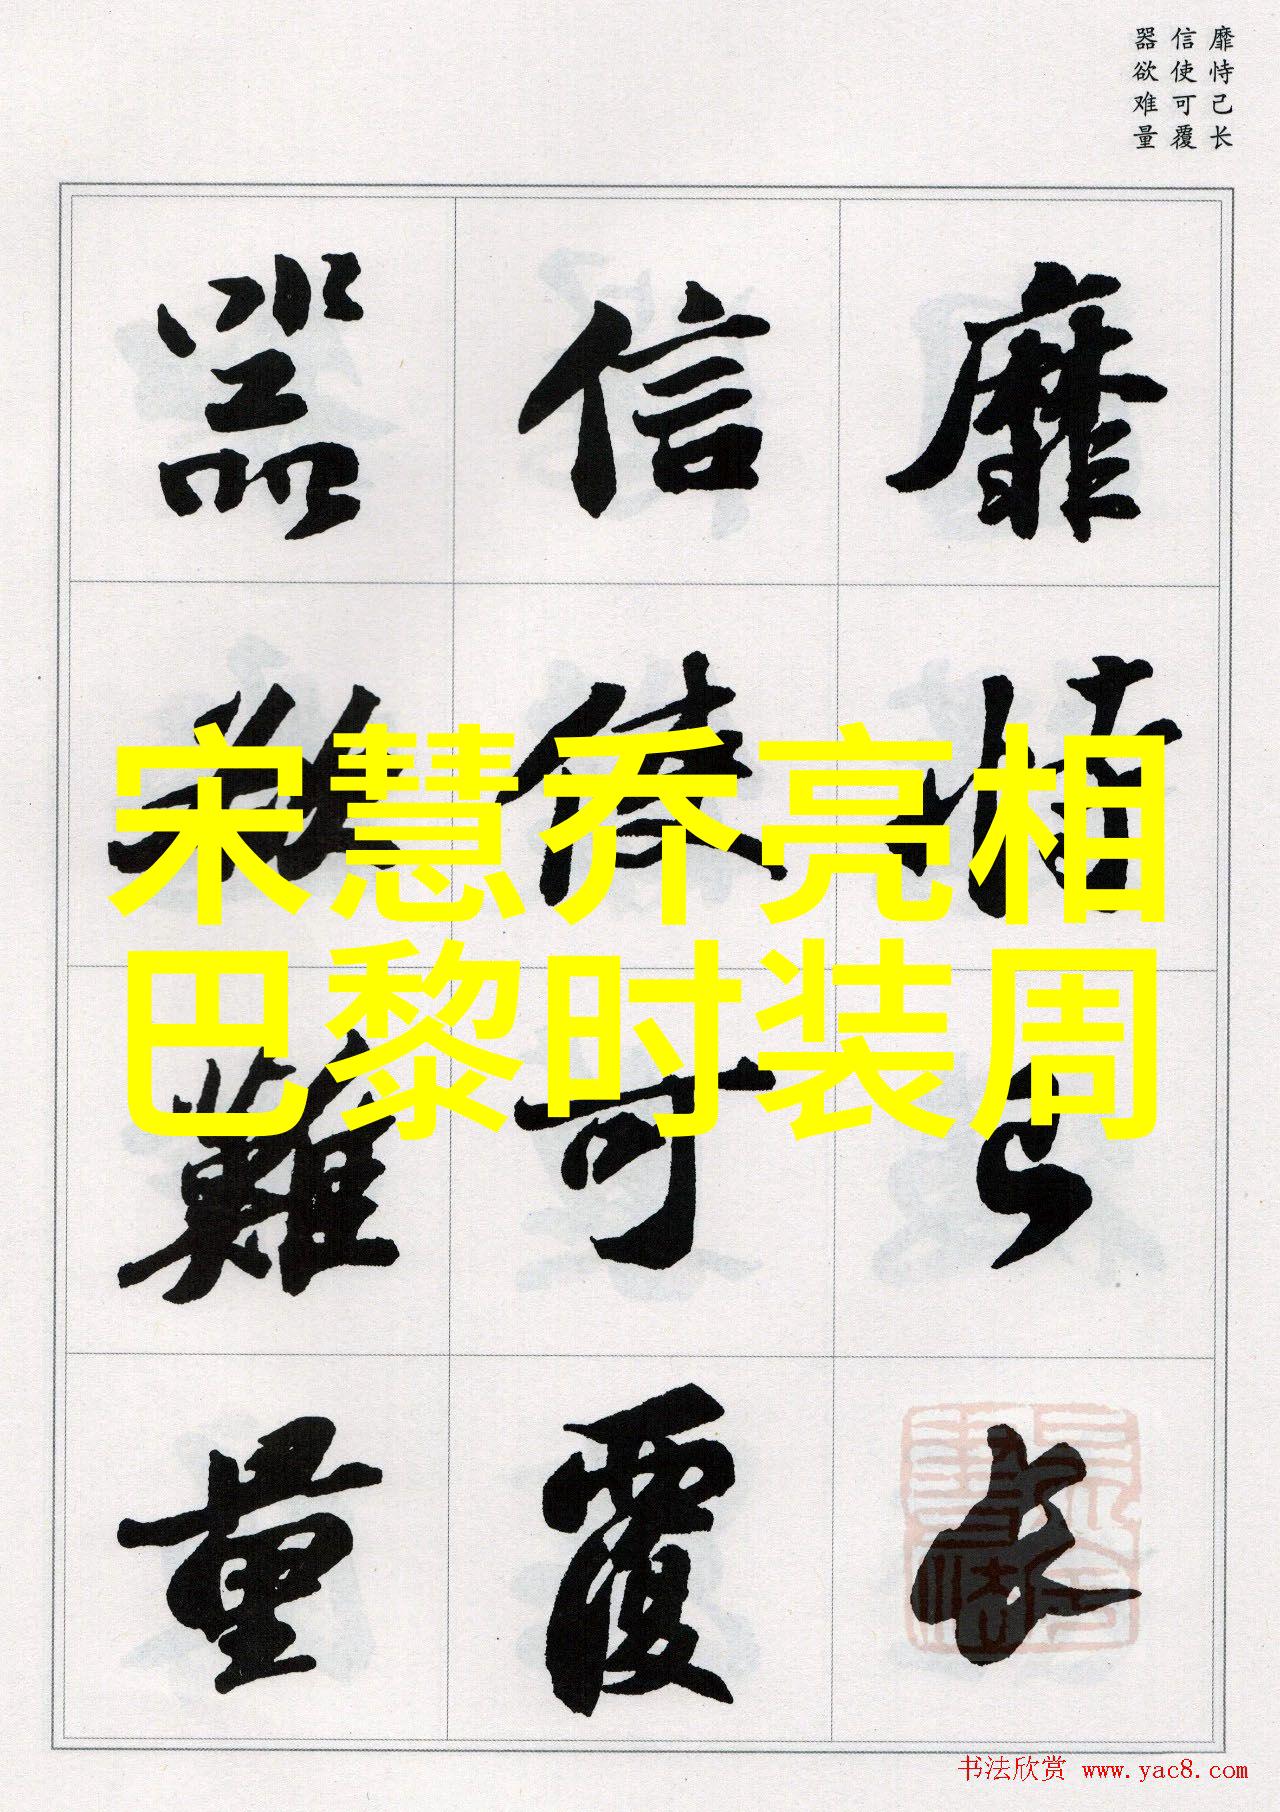 靡恃己长
信使可覆
器欲难量
靡恃己长
信使可覆
器欲難量
宋慧乔亮相
巴黎时装周
书法欣赏 www.yac8.com